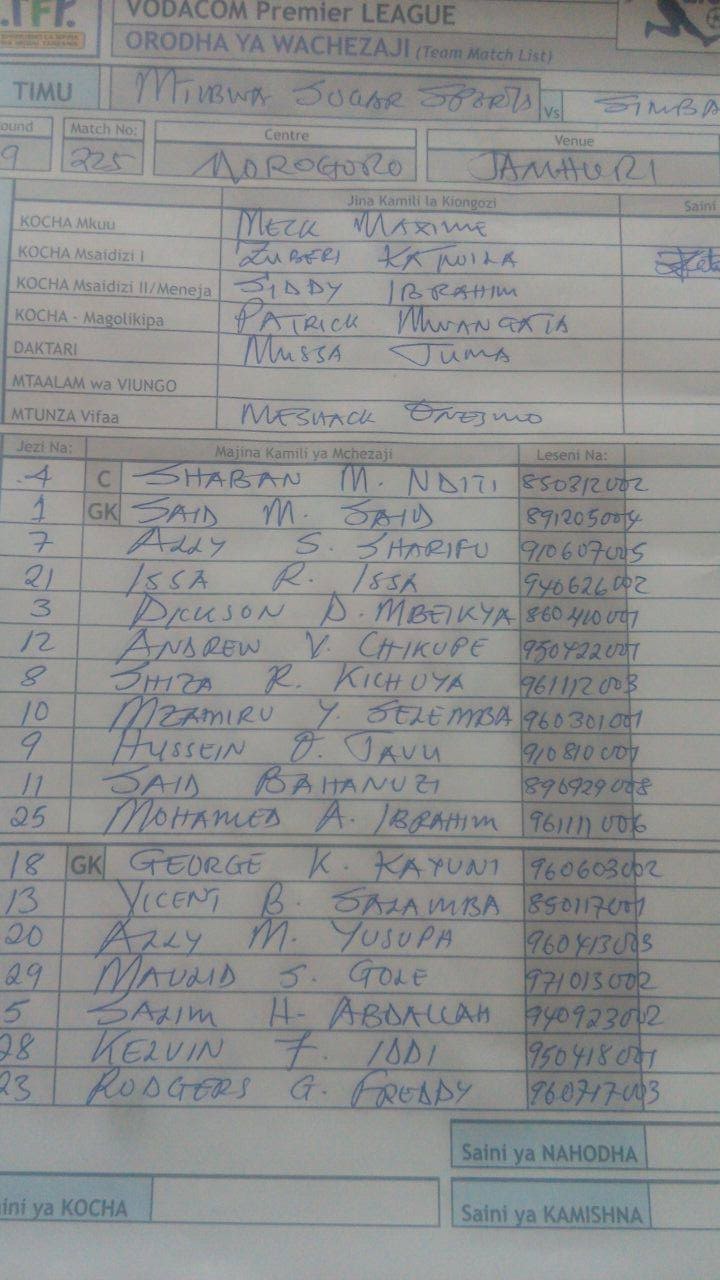 TFF.
VODACOM Premier LEAGUE
ORODHA YA WACHEZAJI (Team Match List)
TIMU MTIBWA SUGAR SPORTS Vs SIMBA
ound Match No: Centre Venue
9 225 MOROGORO JAMHURI
Jina Kamili la Kiongozi Saini
KOCHA Mkuu MECK MAXIME
KOCHA Msaidizi I ZUBERI KATWILA
KOCHA Msaidizi II/Meneja SIDDY IBRAHIM
KOCHA - Magolikipa PATRICK MWANGATA
DAKTARI MUSSA JUMA
MTAALAM wa VIUNGO
MTUNZA Vifaa MESHACK ONESMO
Jezi Na: Majina Kamili ya Mchezaji Leseni Na:
4 C SHABAN M. NDITI 850312002
1 GK SAID M. SAID 891205004
7 ALLY S. SHARIFU 910607005
21 ISSA R. ISSA 940626002
3 DICKSON D. MBEIKYA 860410001
12 ANDREW V. CHIKUPE 950422001
8 SHIZA R. KICHUYA 961112003
10 MZAMIRU Y. SELEMBA 960301001
9 HUSSEIN O. JAVU 910810001
11 SAID BAHANUZI 896929008
25 MOHAMED A. IBRAHIM 961111006
18 GK GEORGE K. KAYUNI 960603002
13 VICENT B. SALAMBA 850117001
20 ALLY M. YUSUPA 960413003
29 MAULID S. GOLE 971013002
5 SALIM H. ABDALLAH 940923002
28 KELVIN F. IDDI 950418001
23 RODGERS G. FREDDY 960717003
Saini ya NAHODHA
ini ya KOCHA Saini ya KAMISHNA